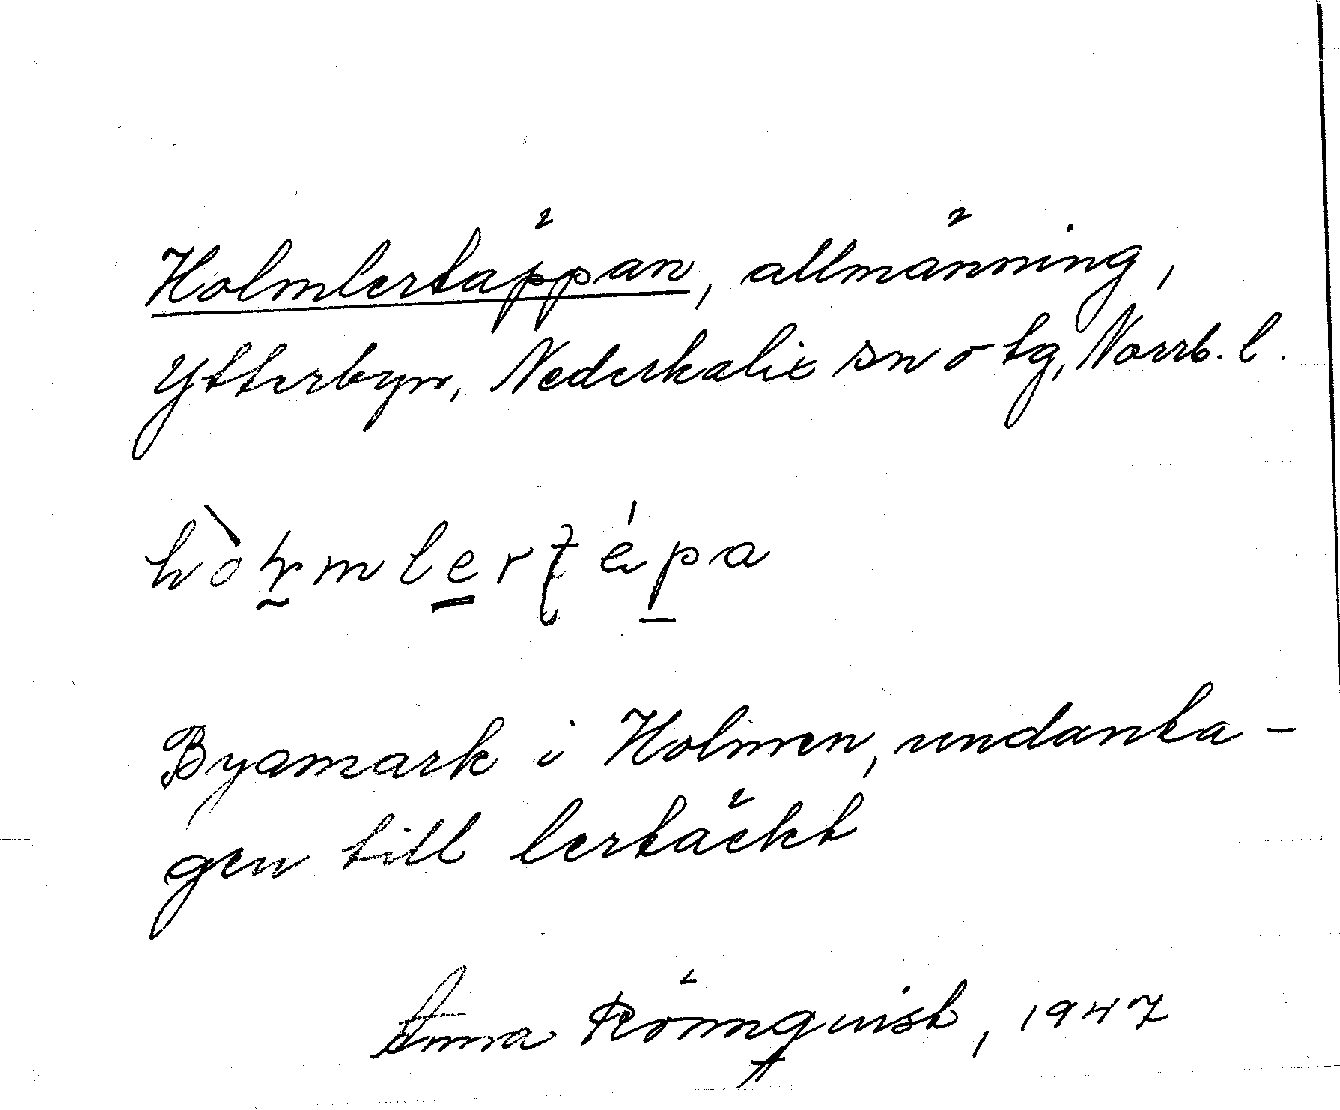 Holmlertäppan, allmänning,
Ytterbyn, Nederkalix sn o tg, Norrb. l.
Byamark i Holmen, undanta-
gen till lertäckt
Anna Rönnqvist, 1947